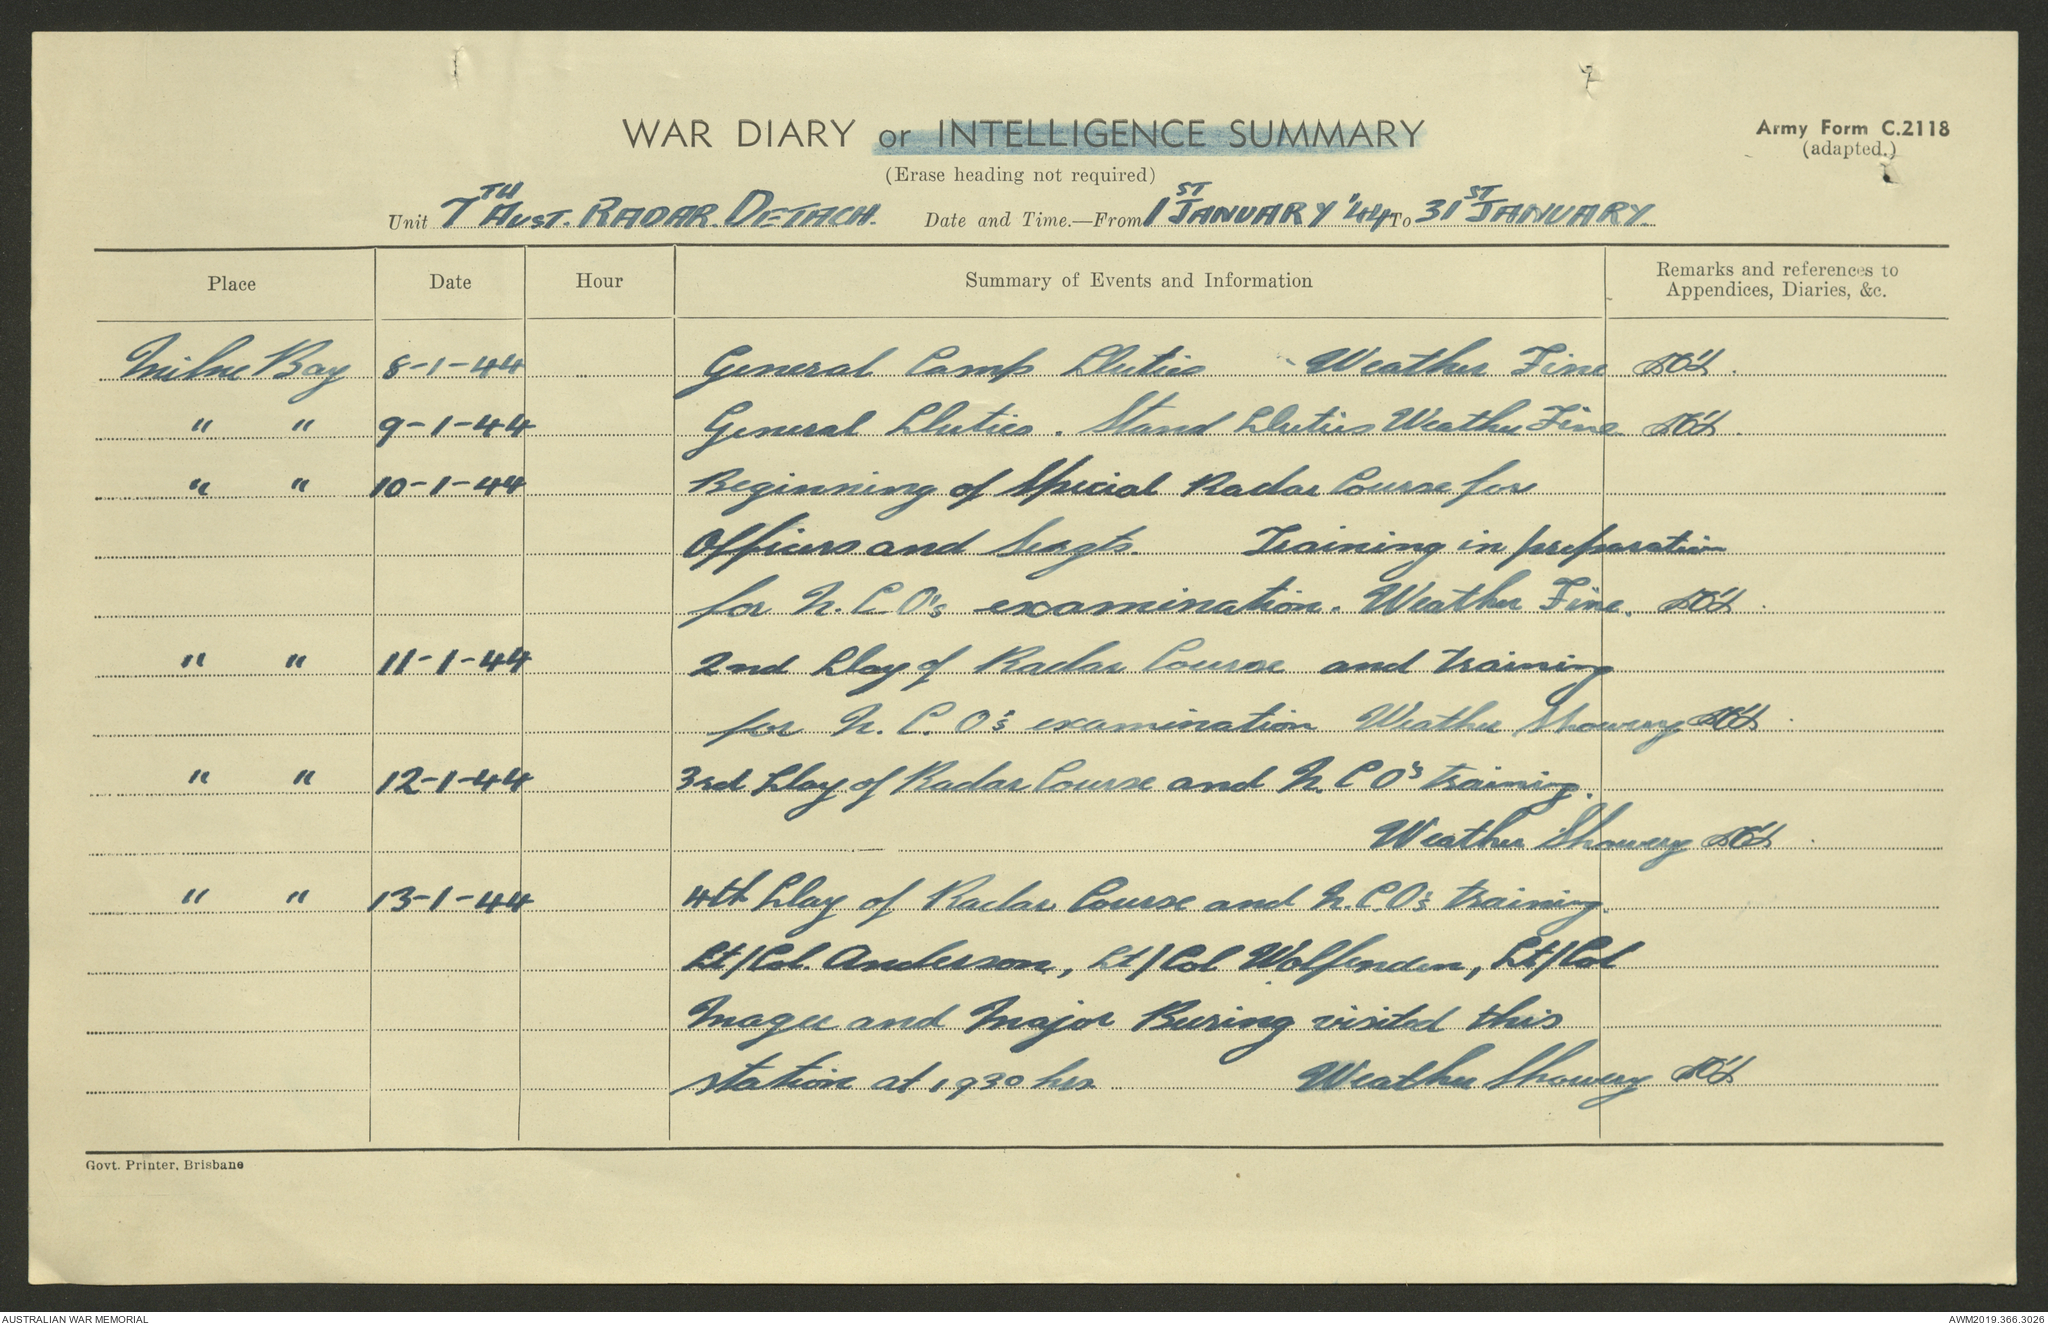 WAR DIARY or INTELLIGENCE SUMMARY
Army Form C.2118
(adapted.)
(Erase heading not required)
Unit 7TH AUST. RADAR. DETACH. Date and Time.—From 1ST JANUARY '44 To 31ST JANUARY.
Place Date Hour Summary of Events and Information Remarks and references to
Appendices, Diaries, &c.
Milne Bay 8-1-44 General Camp Duties - Weather Fine
" " 9-1-44 General Duties. Stand Duties Weather Fine
" " 10-1-44 Beginning of Special Radar Course for
Officers and Sergts. Training in preparation
for N.C.O's examination. Weather Fine.
" " 11-1-44 2nd Day of Radar Course and training
for N.C.O's examination Weather Showery
" " 12-1-44 3rd Day of Radar Course and N.C.O's training.
Weather Showery
" " 13-1-44 4th Day of Radar Course and N.C.O's training.
Lt/Col. Anderson, Lt/Col Wolfenden, Lt/Col
Magee and Major Buring visited this
station at 1930 hrs Weather Showery
Govt. Printer, Brisbane
AUSTRALIAN WAR MEMORIAL
AWM2019.366.3026